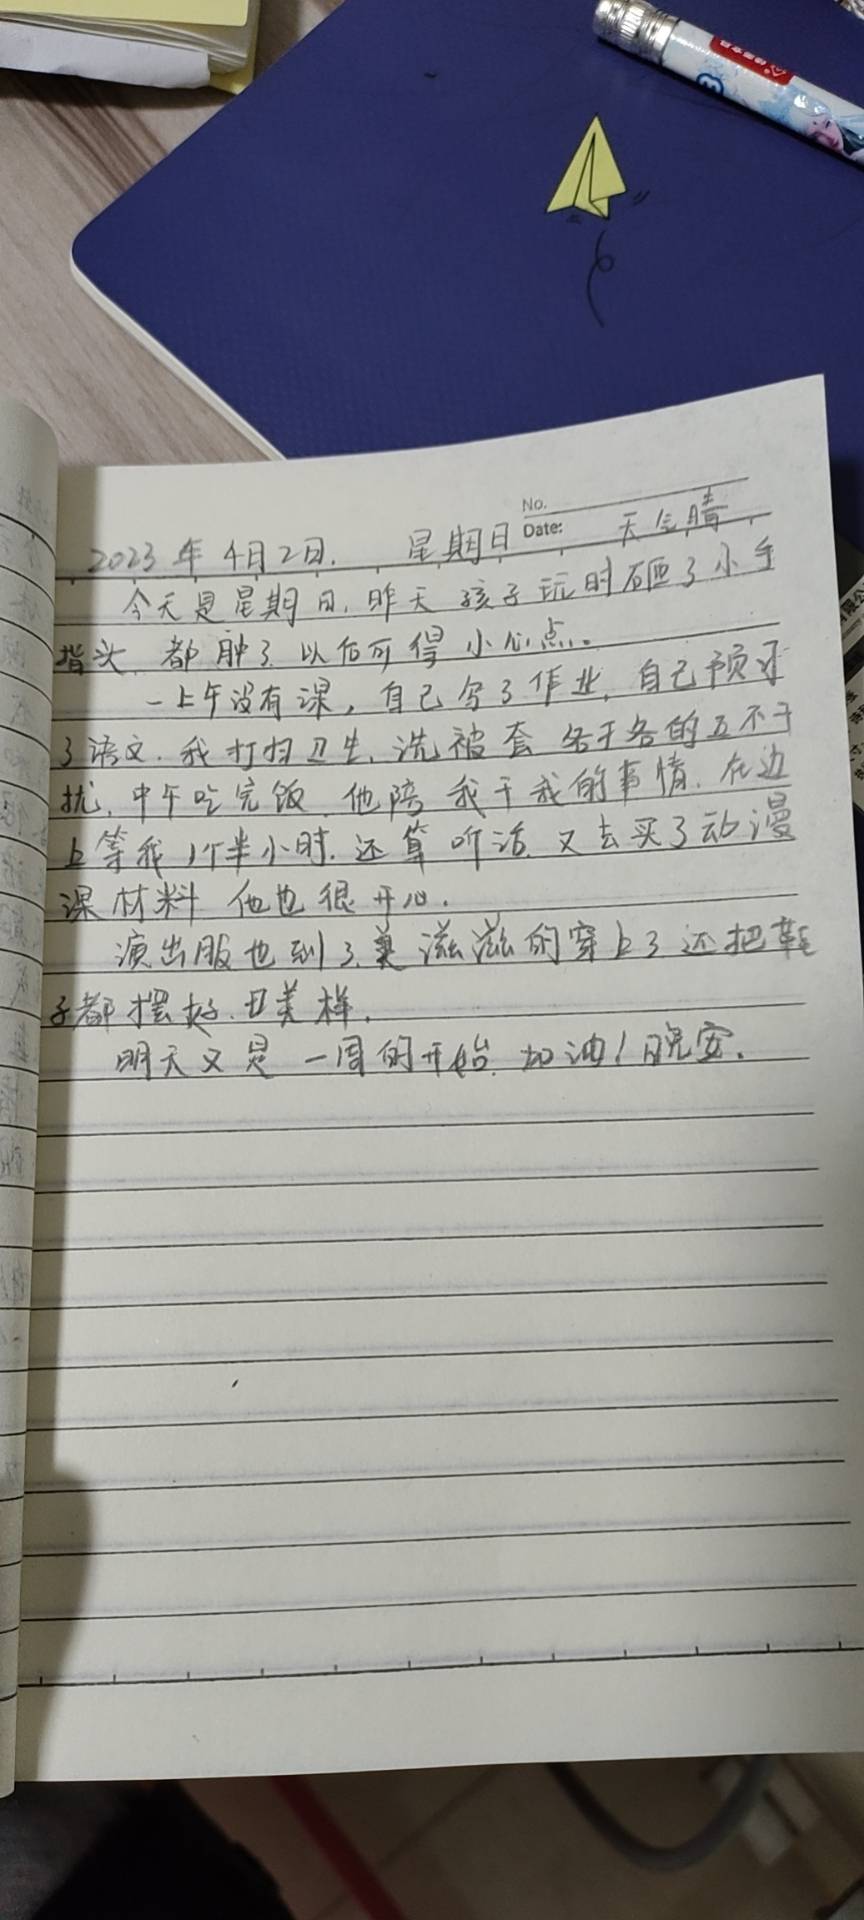 No.
Date:
2023年4月2日. 星期日 天气晴
今天是星期日, 昨天孩子玩时砸了小手
指头 都肿了. 以后可得小心点。
一上午没有课, 自己写了作业, 自己预习
了语文. 我打扫卫生, 洗被套 各干各的互不干
扰. 中午吃完饭. 他陪我干我的事情. 在边
上等我1个半小时. 还算听话. 又去买了动漫
课材料 他也很开心.
演出服也到了. 美滋滋的穿上了 还把鞋
子都摆好. 臭美样.
明天又是一周的开始. 加油! 晚安.